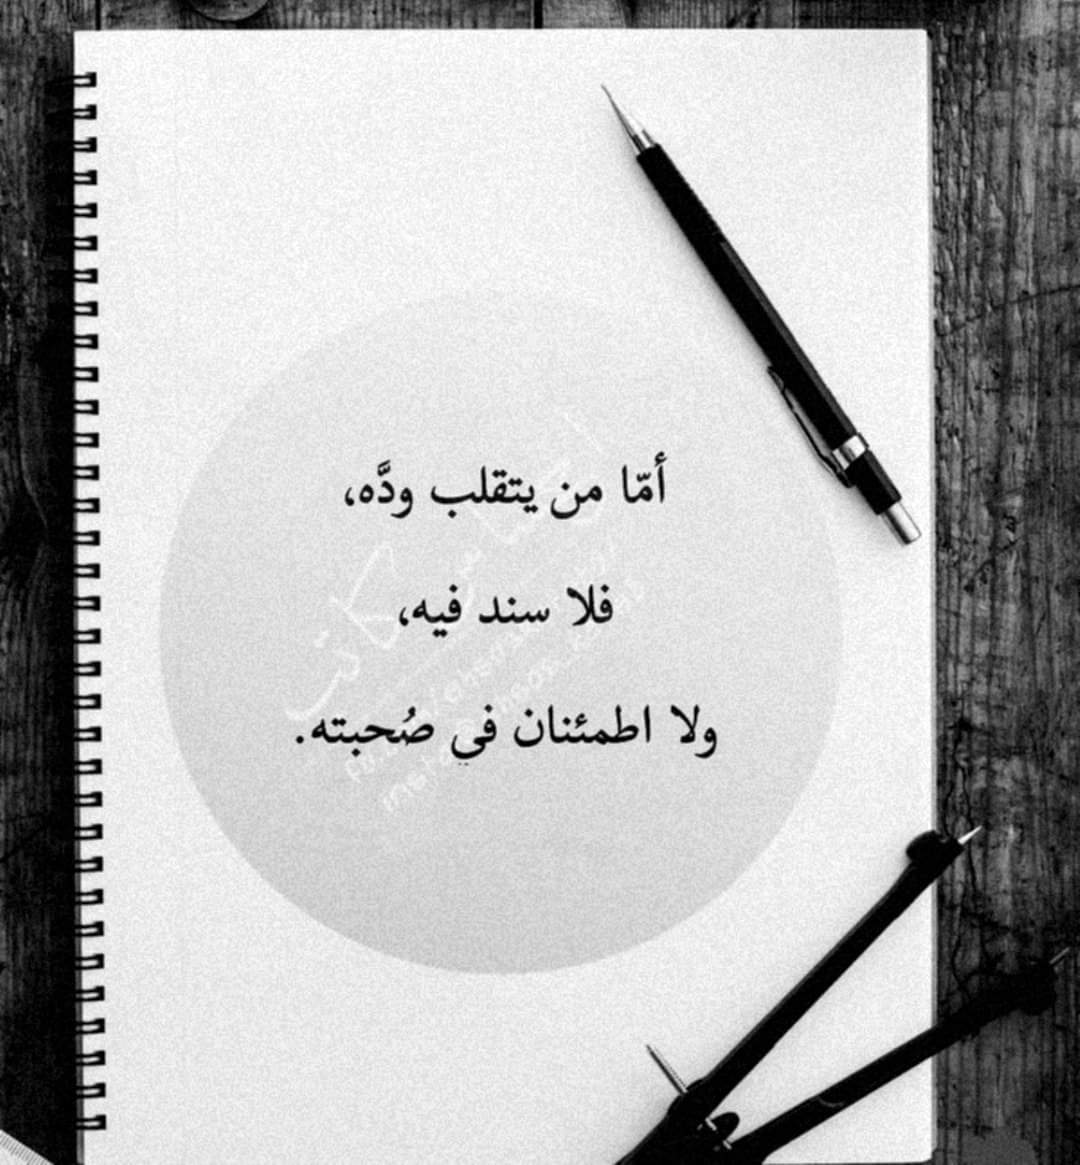 أمّا من يتقلب ودَّه،
فلا سند فيه،
ولا اطمئنان في صُحبته.